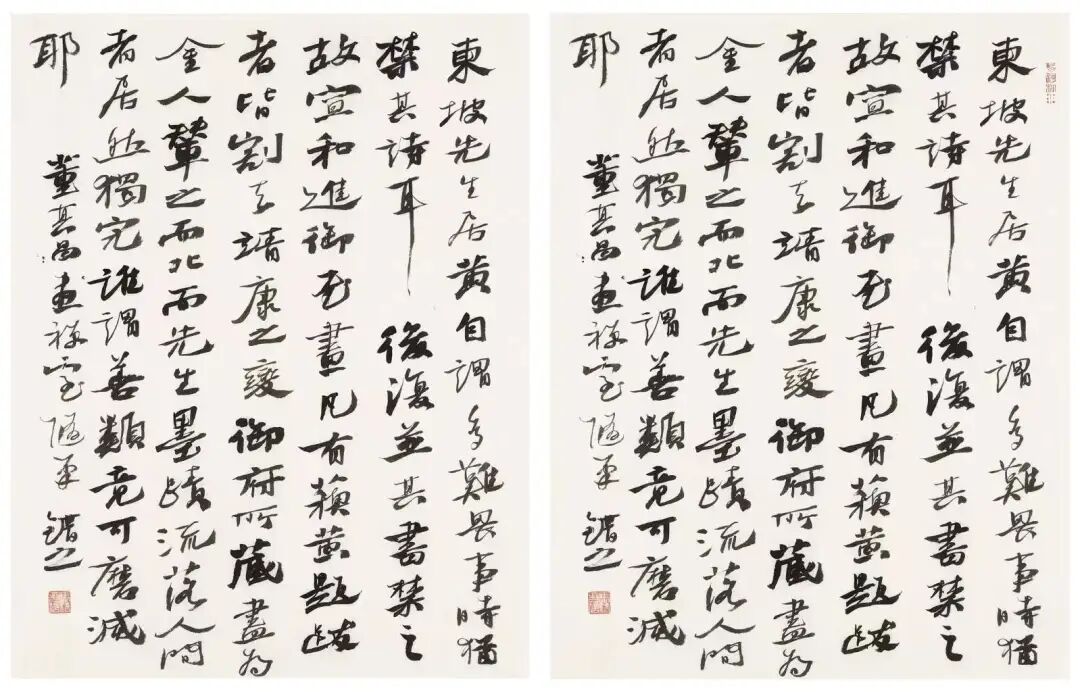 東坡先生居黃自謂多難畏事時猶
禁其詩耳後復並其書禁之
故宣和進御書畫凡有蘇黃題跋
者皆割去靖康之變御府所藏盡為
金人輦之而北而先生墨蹟流落人間
者居然獨完誰謂善類竟可磨滅
耶
董其昌畫禪室隨筆
東坡先生居黃自謂多難畏事時猶
禁其詩耳後復並其書禁之
故宣和進御書畫凡有蘇黃題跋
者皆割去靖康之變御府所藏盡為
金人輦之而北而先生墨蹟流落人間
者居然獨完誰謂善類竟可磨滅
耶
董其昌畫禪室隨筆